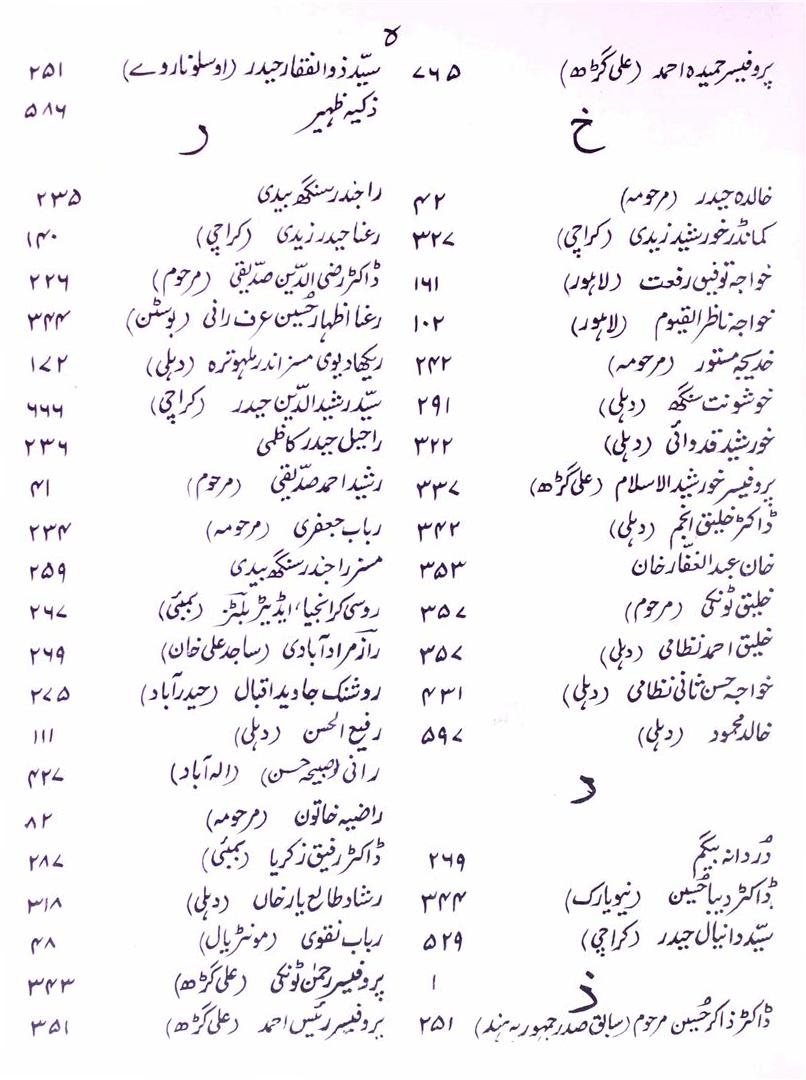 ہ
پروفیسر حمیدہ احمد (علی گڑھ) ۷۶۵
خ
خالدہ حیدر (مرحومہ) ۴۲
کمانڈر خورشید زیدی (کراچی) ۳۲۷
خواجہ توفیق رفعت (لاہور) ۱۶۱
خواجہ ناظر القیوم (لاہور) ۱۰۲
خدیجہ مستور (مرحومہ) ۲۴۲
خوشونت سنگھ (دہلی) ۲۹۱
خورشید قدوائی (دہلی) ۳۲۲
پروفیسر خورشید الاسلام (علی گڑھ) ۳۳۷
ڈاکٹر خلیق انجم (دہلی) ۳۴۲
خان عبدالغفّار خان ۳۵۳
خلیق ٹونکی (مرحوم) ۳۵۷
خلیق احمد نظامی (دہلی) ۳۵۷
خواجہ حسن ثانی نظامی (دہلی) ۴۳۱
خالد محمود (دہلی) ۵۹۷
د
دُردانہ بیگم ۲۶۹
ڈاکٹر دیبا حُسین (نیویارک) ۳۴۴
سیّد دانیال حیدر (کراچی) ۵۲۹
ذ ۱
ڈاکٹر ذاکر حُسین مرحوم (سابق صدر جمہوریہ ہند) ۲۵۱
سیّد ذوالفقار حیدر (اوسلو ناروے) ۲۵۱
ذکیہ ظہیر ۵۸۶
ر
راجندر سنگھ بیدی ۲۳۵
رعنا حیدر زیدی (کراچی) ۱۴۰
ڈاکٹر رضی الدّین صدّیقی (مرحوم) ۲۲۶
رعنا اظہار حُسین عرف رانی (بوسٹن) ۳۴۴
ریکھا دیوی مسز اندر ملہوترہ (دہلی) ۱۷۲
سیّد رشید الدّین حیدر (کراچی) ۶۶۶
راحیل حیدر کاظمی ۲۳۶
رشید احمد صدّیقی (مرحوم) ۴۱
رباب جعفری (مرحومہ) ۲۳۴
مسز راجندر سنگھ بیدی ۲۵۹
روسی کرانجیا، ایڈیٹر بلٹز (بمبئی) ۲۶۷
راز مرادآبادی (ساجد علی خان) ۲۶۹
روشنک جاوید اقبال (حیدرآباد) ۲۷۵
رفیع الحسن (دہلی) ۱۱۱
رانی (صبیحہ حسن) (الہ آباد) ۴۲۷
راضیہ خاتون (مرحومہ) ۸۲
ڈاکٹر رفیق زکریا (بمبئی) ۲۸۷
رشاد طالع یار خاں (دہلی) ۳۱۸
رباب نقوی (مونٹریال) ۴۸
پروفیسر رحمٰن ٹونکی (علی گڑھ) ۳۴۳
پروفیسر رئیس احمد (علی گڑھ) ۳۵۱